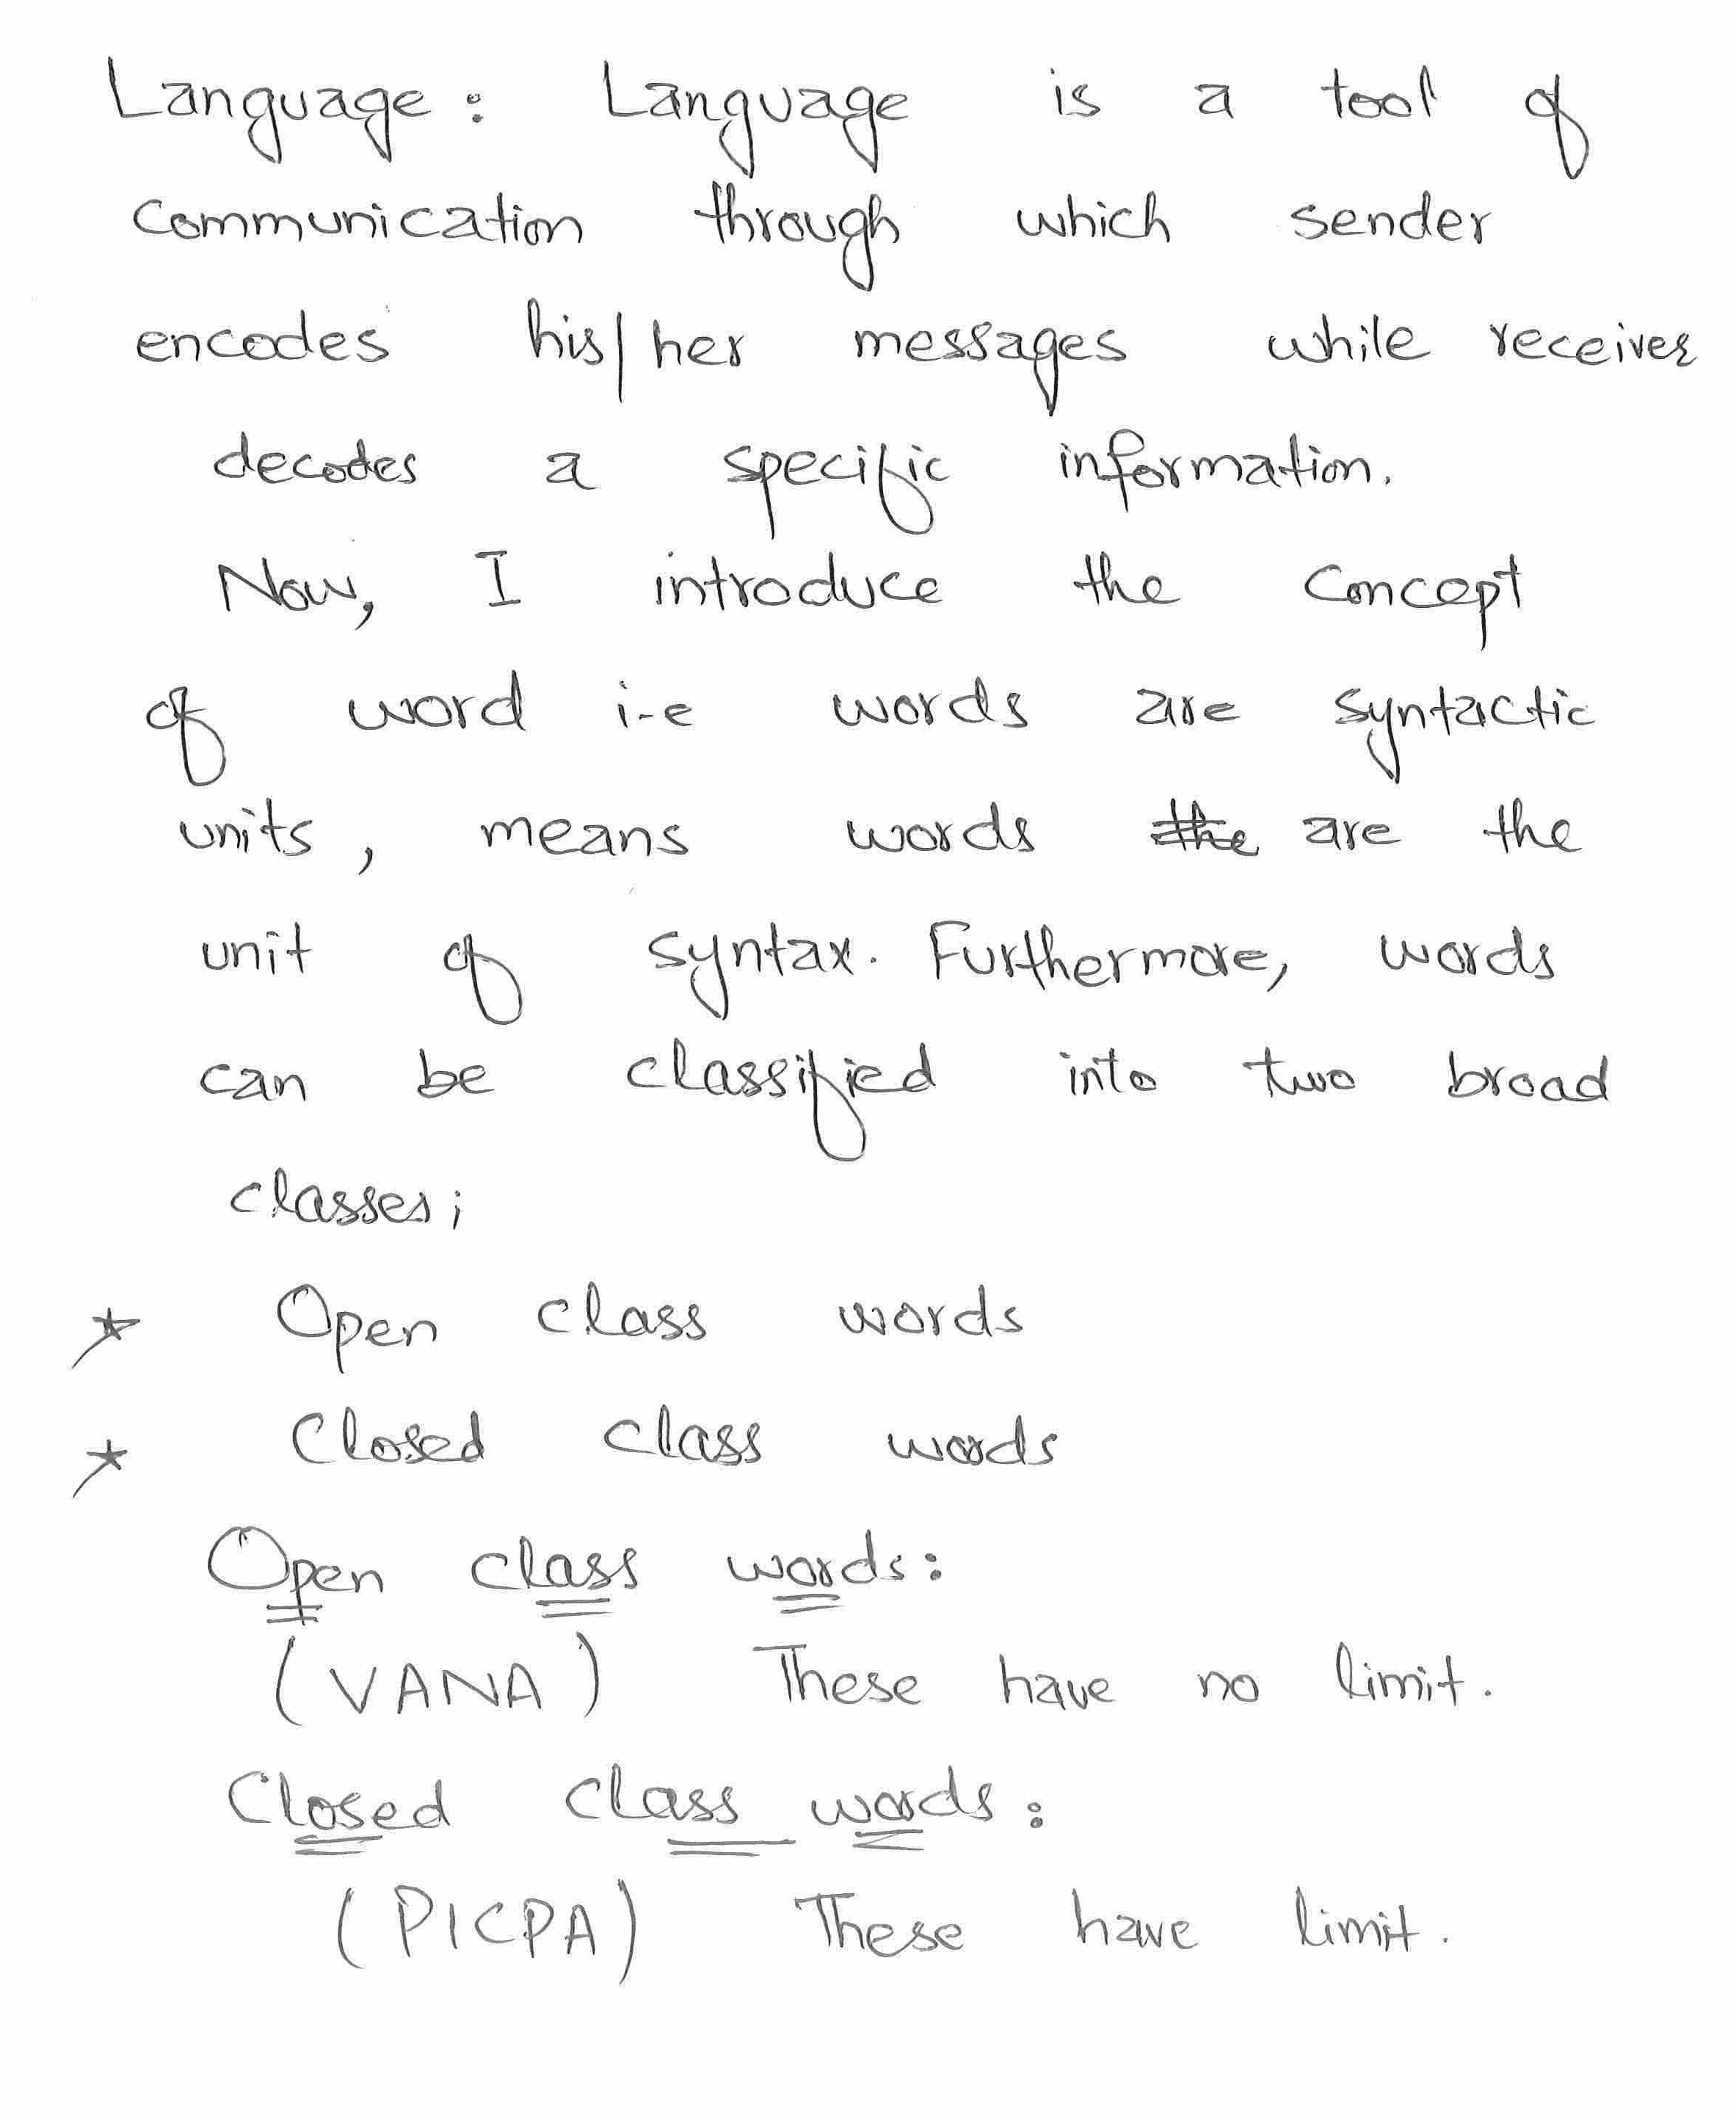 Language: Language is a tool of
communication through which sender
encodes his/her messages while receiver
decodes a specific information.
Now, I introduce the concept
of word i-e words are syntactic
units, means words the are the
unit of syntax. Furthermore, words
can be classified into two broad
classes;
* Open class words
* Closed class words
Open class words:
(VANA) These have no limit.
Closed class words:
(PICPA) These have limit.